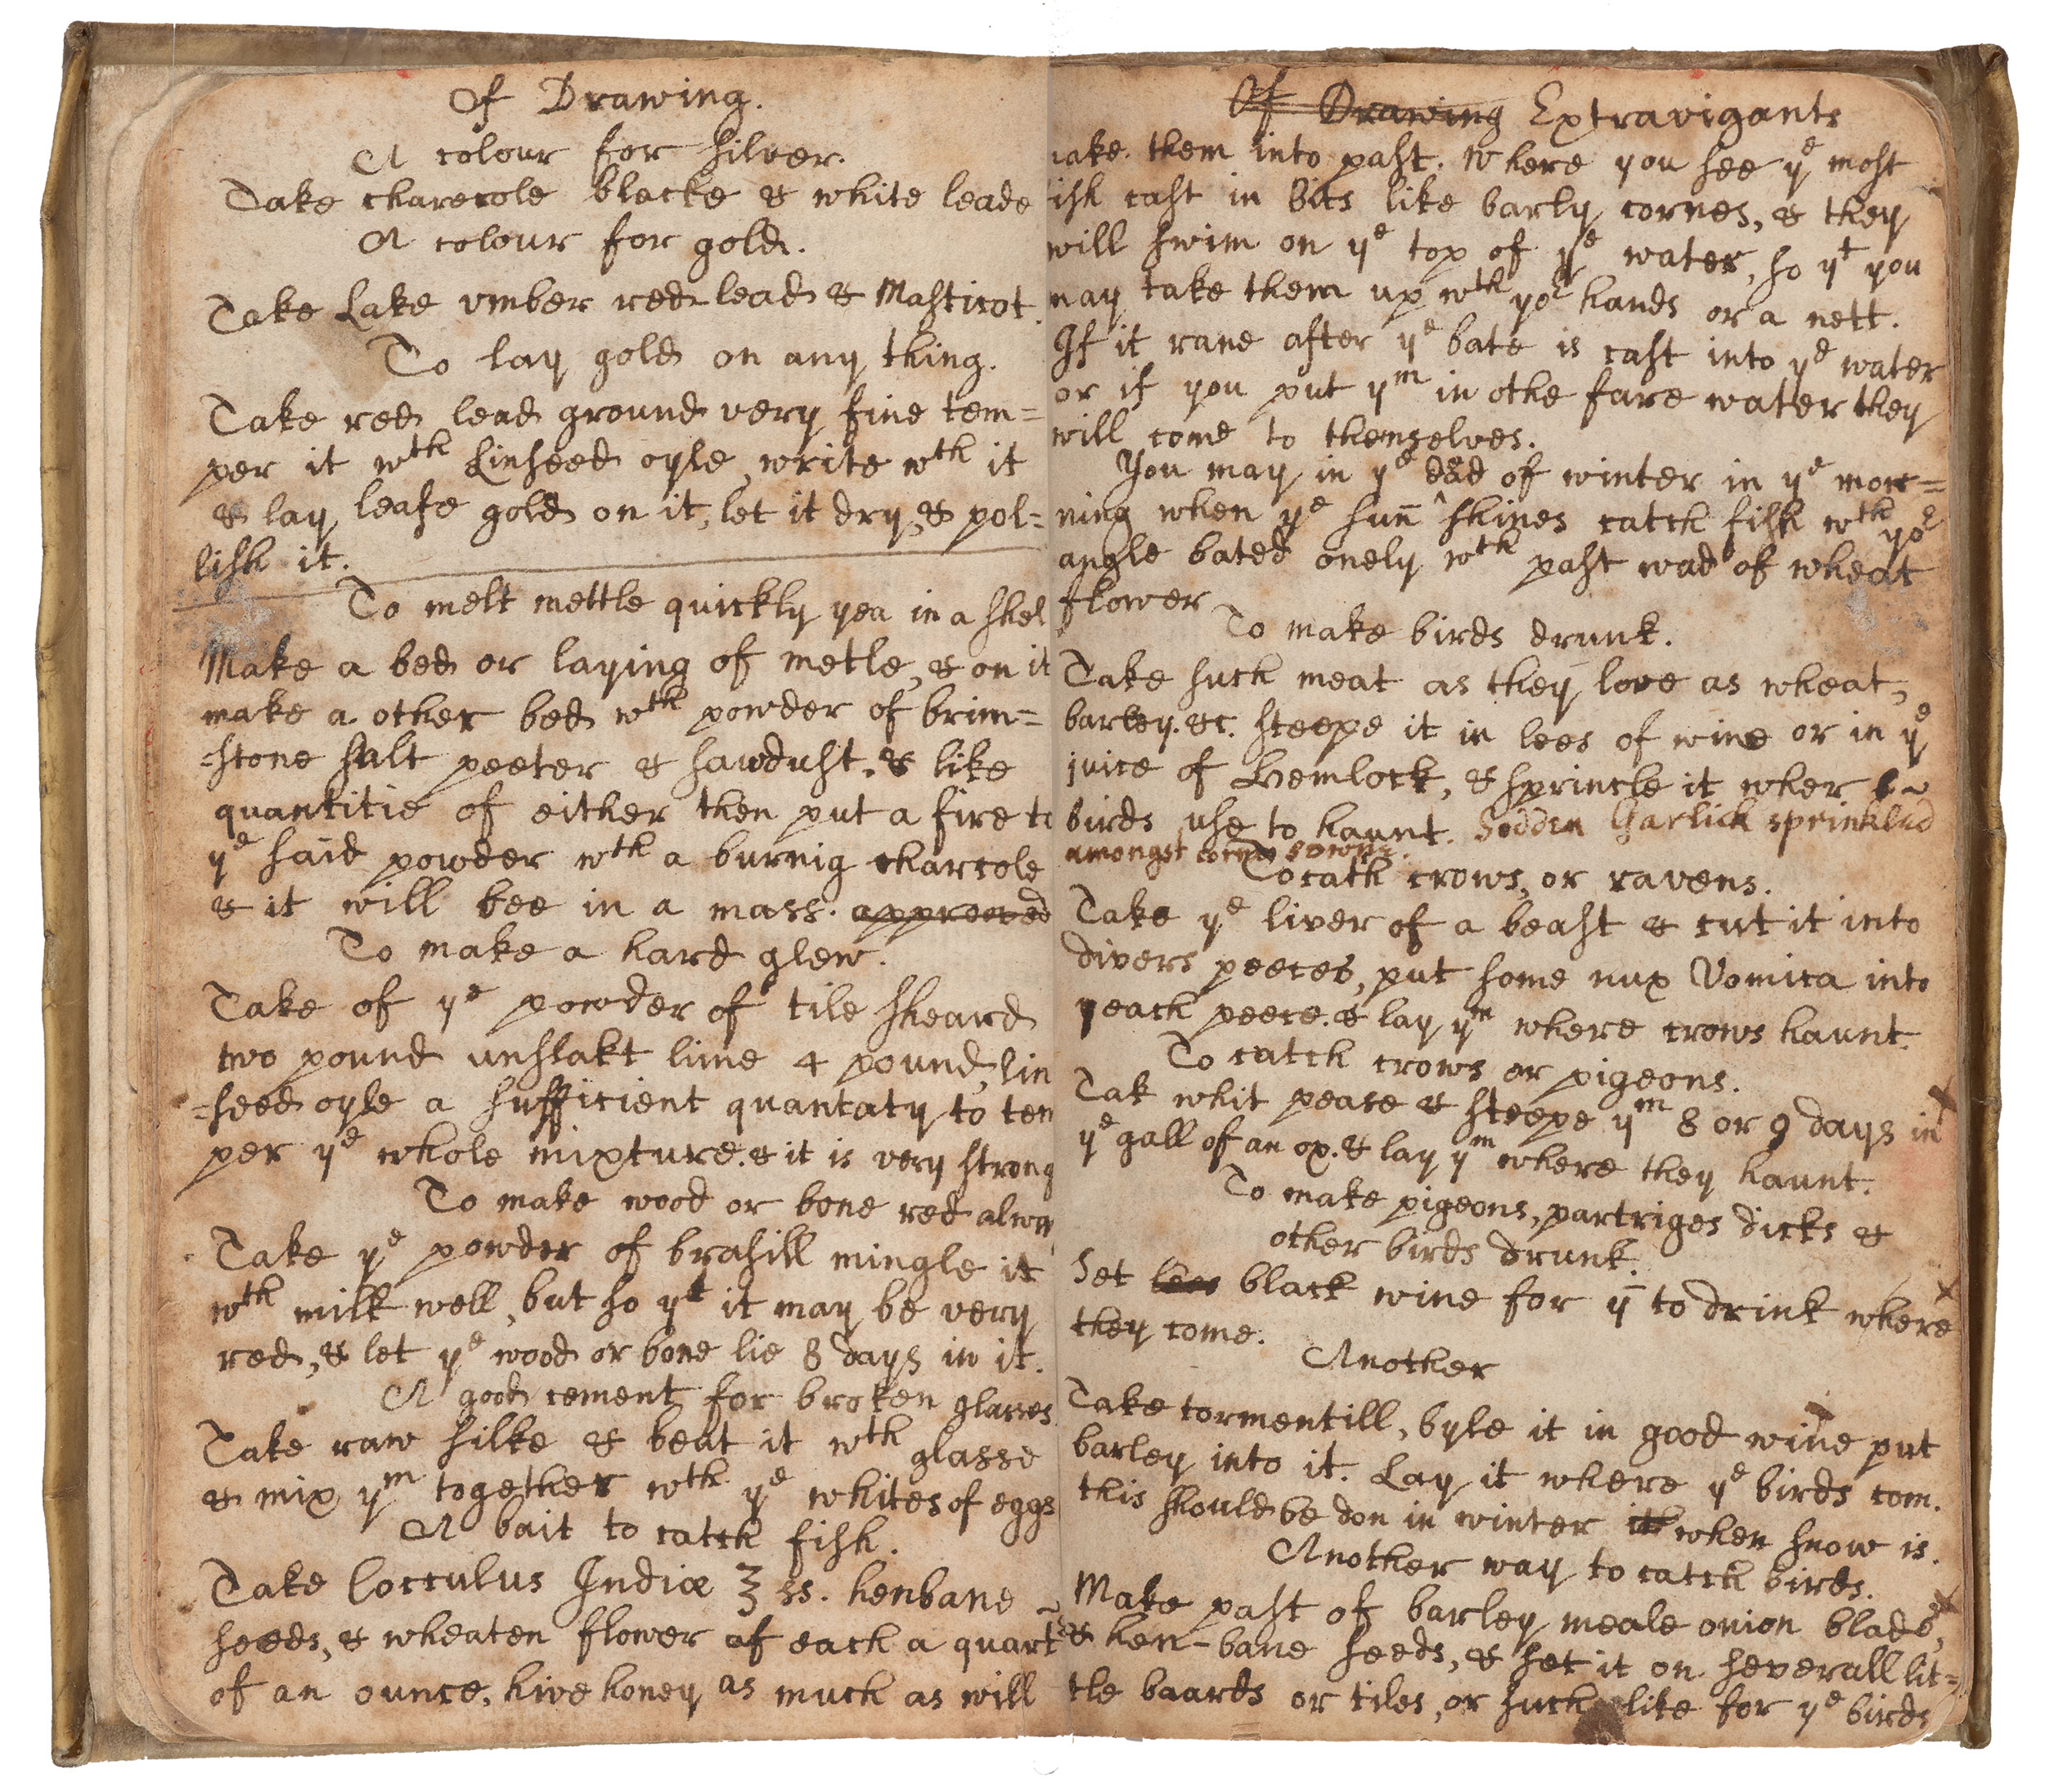 Of Drawing.
A colour for silver.
Take charecole blacke & white leade
A colour for gold.
Take Lake umber red lead & Masticot.
To lay gold on any thing.
Take red lead ground very fine tem=
per it wth Linseed oyle, write wth it
& lay leafe gold on it, let it dry, & pol=
lish it.
To melt mettle quickly yea in a shel
Make a bed or laying of metle, & on it
make a other bed wth powder of brim=
=stone salt peeter & sawdust, & like
quantitie of either then put a fire to
ye said powder wth a burnig charcole
& it will bee in a mass. approoved
To make a hard glew.
Take of ye powder of tile sheard
two pound unslakt lime 4 pound, lin
=seed oyle a sufficient quantaty to tem
per ye whole mixture. & it is very strong
To make wood or bone red alway
Take ye powder of brasill mingle it
wth milk well, but so yt it may be very
red, & let ye wood or bone lie 8 days in it.
A good cement for broken glasses
Take raw silke & beat it wth glasse
& mix ym together wth ye whites of eggs
A bait to catch fish.
Take Cocculus Indiæ ℥ ss. henbane
seeds, & wheaten flower of each a quart
of an ounce, hive honey as much as will
Of Drawing Extravigants
make them into past. Where you see ye most
fish cast in bits like barly cornes, & they
will swim on ye top of ye water, so yt you
may take them up wth yor hands or a nett.
If it rane after ye bate is cast into ye water
or if you put ym in othe fare water they
will come to themselves.
You may in ye dead of winter in ye mor=
ning when ye sun̄ shines catch fish wth yor
angle bated onely wth past wad of wheat
flower
To make birds drunk.
Take such meat as they love as wheat,
barley. &c. steepe it in lees of wine or in ye
juice of Hemlock, & sprincle it wher
birds use to haunt. Sodden Garlick sprinkled
amongst corne sowne.
To catch crows, or ravens.
Take ye liver of a beast & cut it into
divers peeces, put some nux Vomica into
each peece. & lay ym where crows haunt.
To catch crows or pigeons.
Tak whit pease & steepe ym 8 or 9 days in
ye gall of an ox. & lay ym where they haunt.
To make pigeons, partriges dicks &
other birds drunk.
Set lees black wine for ȳ to drink where
they come.
Another
Take tormentill, byle it in good wine put
barley into it. Lay it where ye birds com.
this should be don in winter it when snow is.
Another way to catch birds.
Make past of barley meale onion blade,
& hen-bane seeds, & set it on severall lit=
tle baards or tiles, or such like for ye birds